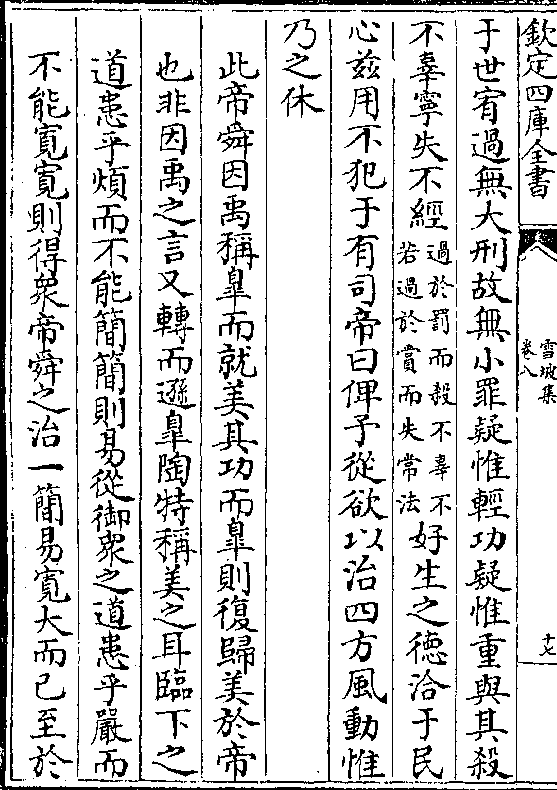 欽定四庫全書
雪坡集
卷八
十七
于世宥過無大刑故無小罪疑惟輕功疑惟重與其殺
不辜寧失不經過於罰而殺不辜不
若過於賞而失常法好生之德洽于民
心兹用不犯于有司帝曰俾予從欲以治四方風動惟
乃之休
此帝舜因禹稱臯而就美其功而臯則復歸美於帝
也非因禹之言又轉而遜臯陶特稱美之耳臨下之
道患乎煩而不能簡簡則易從御衆之道患乎嚴而
不能寛寛則得衆帝舜之治一簡易寛大而已至於